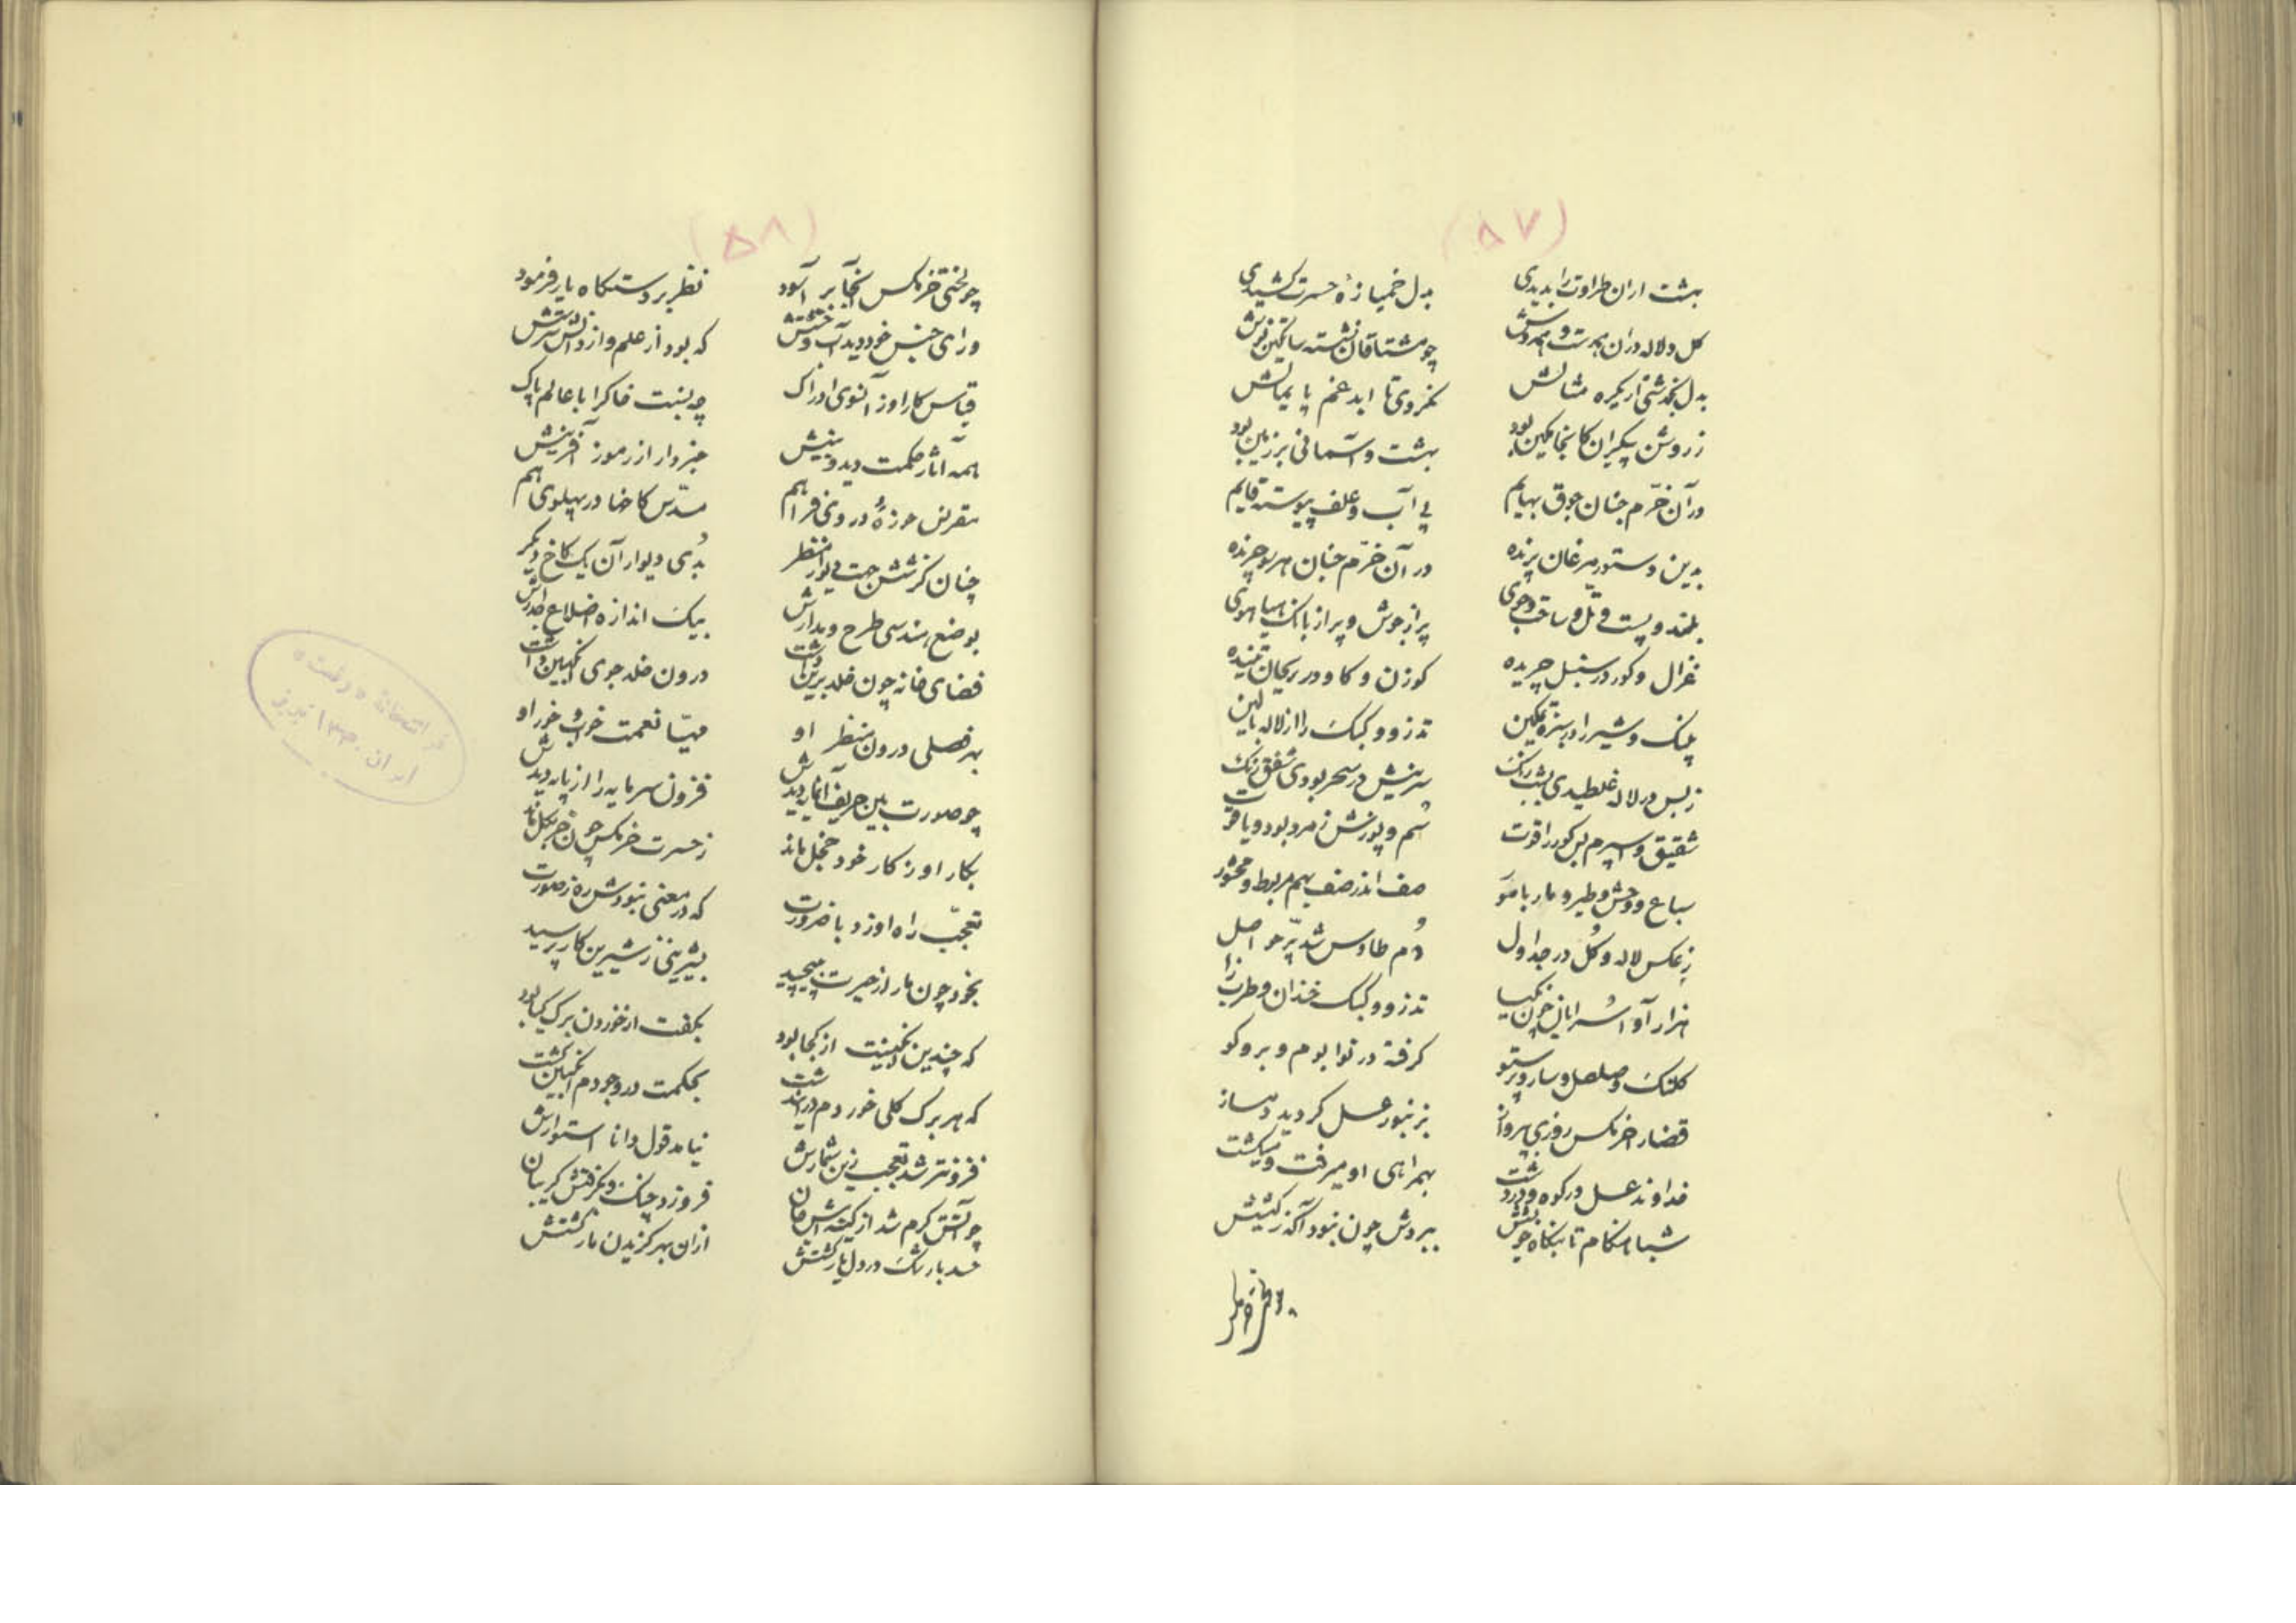 (۵۷)
بهشت ار آن طراوت را بدیدی بدل خمیازهٔ حسرت کشیدی
کل و لاله در آن چو مشتاقان نشسته
بدل نکذشتی ار یکره مثالش نکردی تا ابد غم پایمالش
ز روشن پیکران کانجا مکین بود بهشت و آسمانی بر زمین بود
در آن خرّم جنان جوق بهایم پی آب و علف پیوسته قایم
بدین دستور مرغان پرنده در آن خرّم جنان هر سو چرنده
بلند و پست و تلّ و ساحت و جوی پر از جوش و پر از بانک هیاهوی
غزال و کور در سنبل چریده کوزن و کاو در ریحان تنیده
پلنک و شیر را در سبزه تمکین تذرو و کبک را از لاله بالین
ز بس در لاله غلطیدی بشبرنک سرینش در سحر بودی شفق رنک
شقیق و اسپرم بس کور را قوت سُم و پوزش زمرد بود و یاقوت
سباع و وحش و طیر و مار با مور صف اندر صف بهم مربوط و محشور
ز عکس لاله و کُل در جداول دُم طاوس شد پرّ حواصل
هزار آوا سُرایان چون نکیسا تذرو و کبک خندان و طرب زا
کلنک و صلصل و سار و پرستو کرفته در نوا بوم و بر و کو
قضا را خرمکس روزی بپرواز بزنبور عسل کردید دمساز
خداوند عسل در کوه و در دشت بهمراهی او میرفت و میکشت
شبا هنکام تا بنکاه خویشش ببردش چون نبود آکه ز کیشش
(۵۸)
چو لختی خرمکس آنجا بر آسود نظر بر دستکاه یار فرمود
ورای جنس خود دید آب و خشتش که بود از علم و از دانش سرشتش
قیاس کار او ز آنسوی ادراک چه نسبت خاک را با عالم پاک
همه آثار حکمت دید و بینش خبردار از رموز آفرینش
مقرنس حوزهٔ در وی فراهم مسدّس کاخها در پهلوی هم
چنان کز شش جهت دیوار منظر بُدی دیوار آن یک کاخ دیکر
بوضع هندسی طرح و مدارش بیک اندازه اضلاع جدارش
فضای خانه چون خلد برین داشت درون خلد جوی انکبین داشت
بهر فصلی درون منظر او مهیّا نعمت خواب و خور او
چو صورت بین حریف آنمایه دیدش فزون سرمایه را از پایه دیدش
بکار او ز کار خود خجل ماند ز حسرت خرمکس چون خر بکل ماند
تعجّب راه او زد با ضرورت که در معنی نبودش ره ز صورت
بخود چون مار از حیرت بپیچید بشیرینی ز شیرین کار پرسید
که چندین انکبینت از کجا بود بکفت از خوردن برک کیا بود
که هر برک کلی خوردم در این دشت بحکمت در وجودم انکبین کشت
فزونتر شد تعجب زین شمارش نیامد قول دانا استوارش
چو آتش کرم شد از کینه اش جان فرو زد چنک و بکرفتش کریبان
حسد بار تنک در دل یار کشتش از آن بهر کزیدن مار کشتش